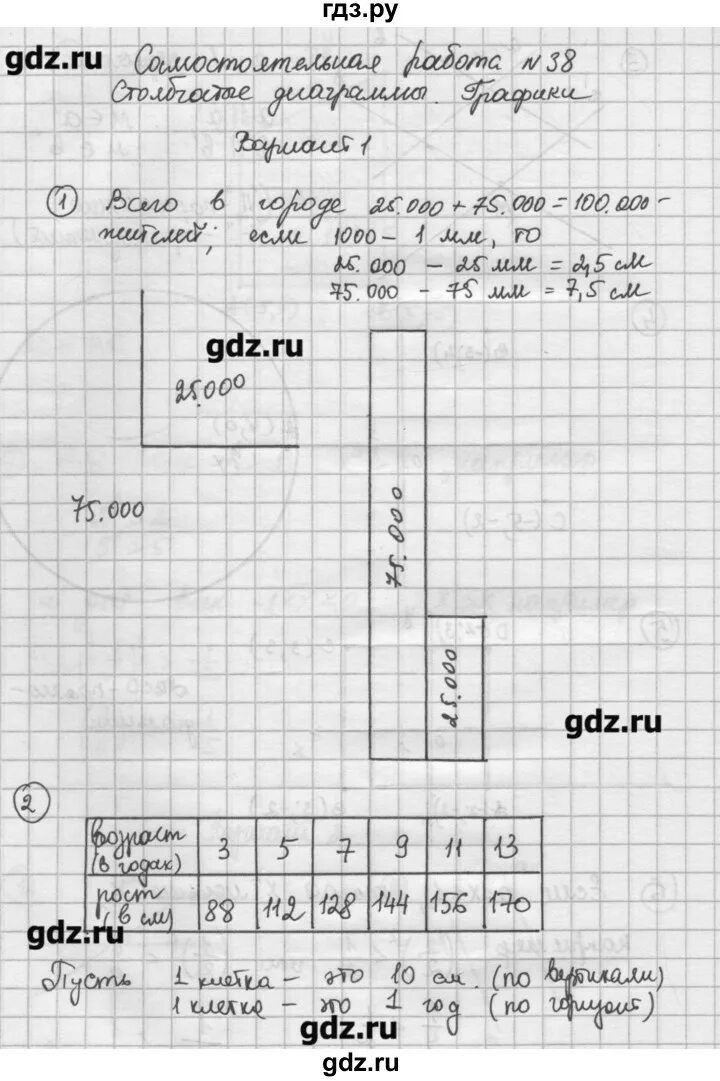 гдз.ру
gdz.ru
Самостоятельная работа №38
Столбчатые диаграммы. Графики
Вариант 1
① Всего в городе 25.000 + 75.000 = 100.000 -
жителей; если 1000 - 1 мм, то
25.000 - 25 мм = 2,5 см
75.000 - 75 мм = 7,5 см
gdz.ru
25.000
75.000
75.000
25.000
gdz.ru
②
возраст (в годах) 3 5 7 9 11 13
рост (в см) 88 112 128 144 156 170
gdz.ru
Пусть 1 клетка - это 10 см. (по вертикали)
1 клетка - это 1 год (по горизонт)
gdz.ru
gdz.ru